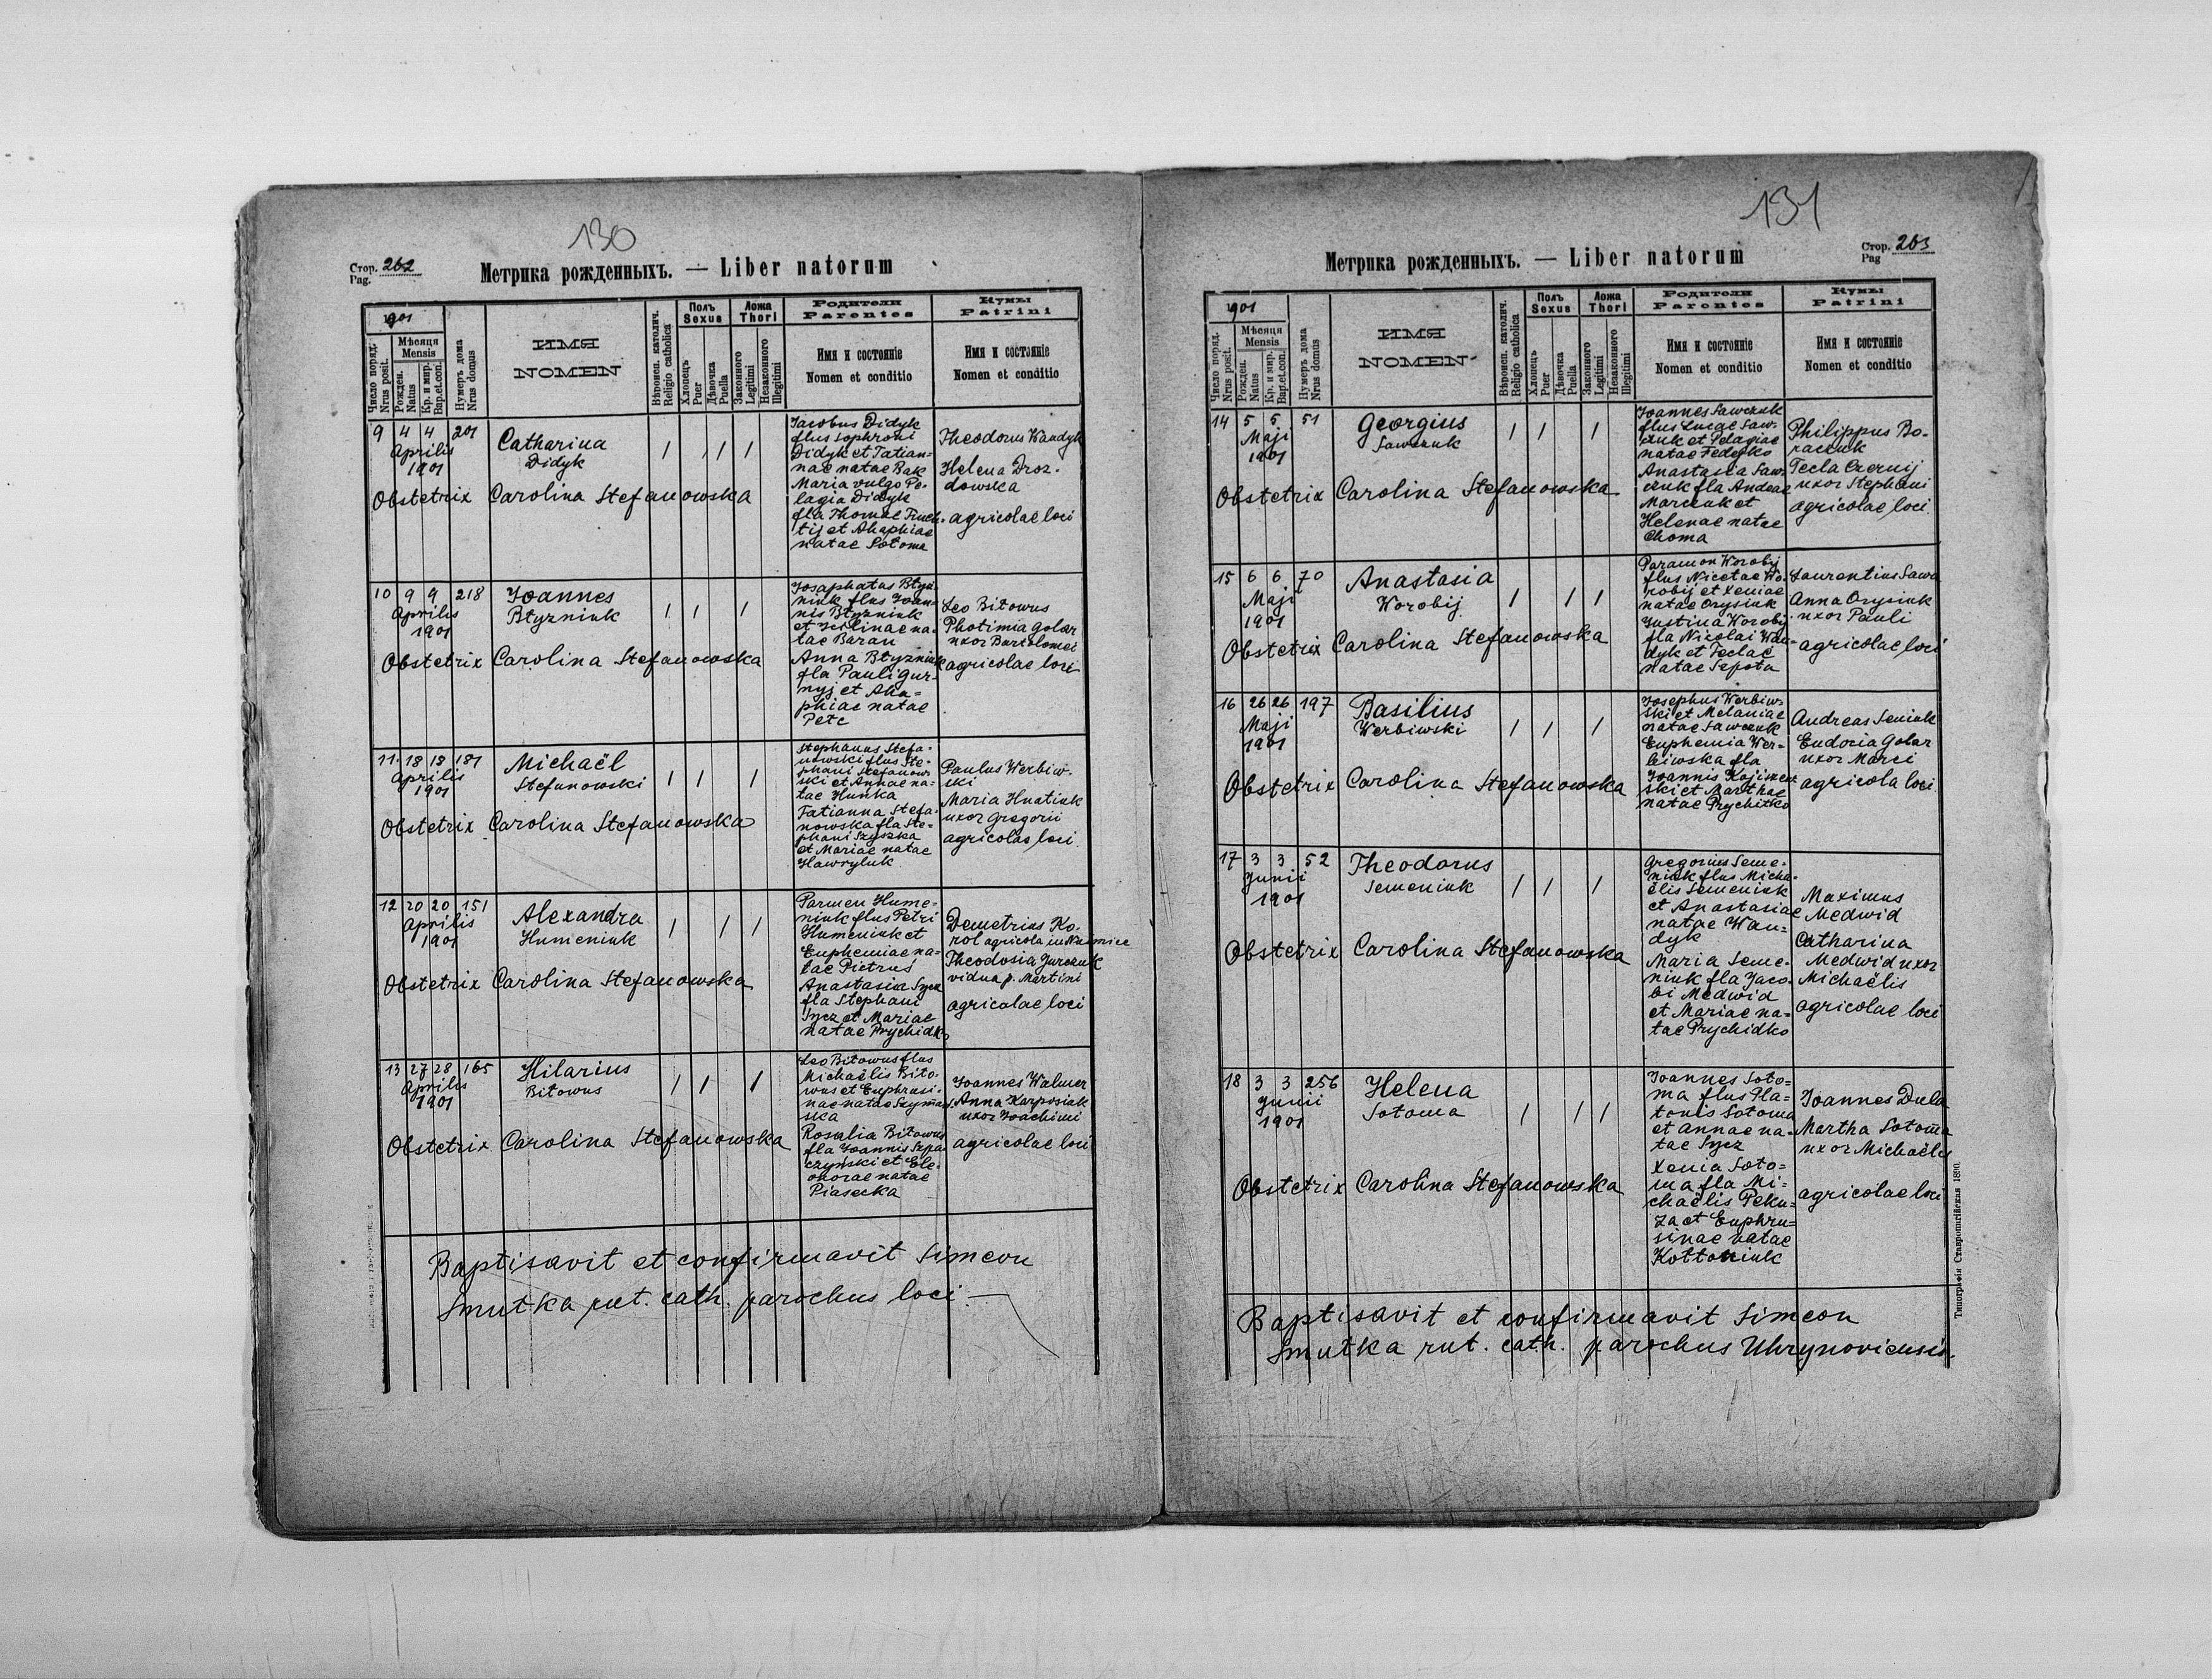 130
Стор. 262
Pag.
Метрика рожденныхъ. — Liber natorum
1901
Число поряд.
Nrus posit.
Мѣсяця
Mensis
Рожден.
Natus
Кр. и мир.
Bap.et.con.
Нумеръ дома
Nrus domus
ИМЯ
NOMEN
Вѣроисп. католич.
Religio catholica
Полъ
Sexus
Хлопецъ
Puer
Дѣвочка
Puella
Ложа
Thori
Законного
Legitimi
Незаконного
Illegitimi
Родители
Parentes
Имя и состояніе
Nomen et conditio
Кумы
Patrini
Имя и состояніе
Nomen et conditio
9 4 4 201
Aprilis
1901
Catharina
Didyk
/ / /
Obstetrix Carolina Stefanowska
Jacobus Didyk
flus Sophroni
Didyk et Tatian-
nae natae Bak
Maria vulgo Pe-
lagia Didyk
fla Thomae Truch-
tij et Ahaphiae
natae Sotoma
Theodorus Wandyk
Helena Droz-
dowska
agricolae loci
10 9 9 218
Aprilis
1901
Joannes
Btyzniuk
/ / /
Obstetrix Carolina Stefanowska
Josaphatus Btyz-
niuk flus Joan-
nis Btyzniuk
et natae Baran
Anna Btyzniuk
fla Pauli Gur-
nyj et Aha=
phiae natae
Petc
Leo Bitowus
Photimia Golar
uxor Bartolomei
agricolae loci
11 18 18 181
Aprilis
1901
Michaël
Stefanowski
/ / /
Obstetrix Carolina Stefanowska
Stephanus Stefa-
nowski flus Ste-
phani Stefanow-
ski et Annae na=
tae Hunka
Tatianna Stefa-
nowska fla Ste=
phani Szyszka
et Mariae natae
Hawryluk
Paulus Werbiw-
ski
Maria Hnatiuk
uxor Gregorii
agricolae loci
12 20 20 151
Aprilis
1901
Alexandra
Humeniuk
/ / /
Obstetrix Carolina Stefanowska
Parmen Hume=
niuk flus Petri
Humeniuk et
Euphemiae na=
tae Pietruś
Anastasia Sycz
fla Stephani
Sycz et Mariae
natae Prychidko
Demetrius Ko-
rol agricola in
Theodosia Jurczuk
vidua p. Martini
agricolae loci
13 27 28 165
Aprilis
1901
Hilarius
Bitowus
/ / /
Obstetrix Carolina Stefanowska
Leo Bitowus flus
Michaëlis Bito-
wus et Euphrasi-
nae natae Szymań-
ska
Rosalia Bitowus
fla Joannis Szpa-
czyński et Ele-
onorae natae
Piasecka
Joannes Walmer
Anna Karposiak
uxor Joachimi
agricolae loci
Baptisavit et confirmavit Simeon
Smutka rut. cath. parochus loci. —
131
Стор. 263
Pag
Метрика рожденныхъ. — Liber natorum
1901
Число поряд.
Nrus posit.
Мѣсяця
Mensis
Рожден.
Natus
Кр. и мир.
Bap.et.con.
Нумеръ дома
Nrus domus
ИМЯ
NOMEN
Вѣроисп. католич.
Religio catholica
Полъ
Sexus
Хлопецъ
Puer
Дѣвочка
Puella
Ложа
Thori
Законного
Legitimi
Незаконного
Illegitimi
Родители
Parentes
Имя и состояніе
Nomen et conditio
Кумы
Patrini
Имя и состояніе
Nomen et conditio
14 5 5 51
Maji
1901
Georgius
Sawczuk
/ / /
Obstetrix Carolina Stefanowska
Joannes Sawczuk
flus Lucae Saw-
czuk et Pelagiae
natae Fedejko
Anastasia Saw-
czuk fla Andreae
Marczuk et
Helenae natae
Choma
Philippus Bo-
raczuk
Tecla Czernij
uxor Stephani
agricolae loci
15 6 6 70
Maji
1901
Anastasia
Worobij
/ / /
Obstetrix Carolina Stefanowska
Paramon Worobij
flus Nicetae Wo-
robij et Xeniae
natae Orysiuk
Justina Worobij
fla Nicolai Wan-
dyk et Teclae
natae Sepota
Laurentius Sawa
Anna Orysiuk
uxor Pauli
agricolae loci
16 26 26 197
Maji
1901
Basilius
Werbiwski
/ / /
Obstetrix Carolina Stefanowska
Josephus Werbiw-
ski et Melaniae
natae Sawczuk
Euphemia Wer-
biwska fla
Joannis
ski et Marthae
natae Prychitko
Andreas Seniuk
Eudocia Golar
uxor Marci
agricola loci
17 3 3 52
Junii
1901
Theodorus
Semeniuk
/ / /
Obstetrix Carolina Stefanowska
Gregorius Seme-
niuk flus Micha-
ëlis Semeniuk
et Anastasiae
natae Wan=
dyk
Maria Seme-
niuk fla Jaco-
bi Medwid
et Mariae na=
tae Prychidko
Maximus
Medwid
Catharina
Medwid uxor
Michaëlis
agricolae loci
18 3 3 256
Junii
1901
Helena
Sotoma
/ / /
Obstetrix Carolina Stefanowska
Joannes Soto=
ma flus Pla=
tonis Sotoma
et Annae na-
tae Sycz
Xenia Soto=
ma fla Mi=
chaëlis Peku-
za et Euphru=
sinae natae
Kottoniuk
Joannes Dula
Martha Sotoma
uxor Michaëlis
agricolae loci
Baptisavit et confirmavit Simeon
Smutka rut. cath. parochus Uhrynoviensis.
Типографія Ставропигійская 1890.